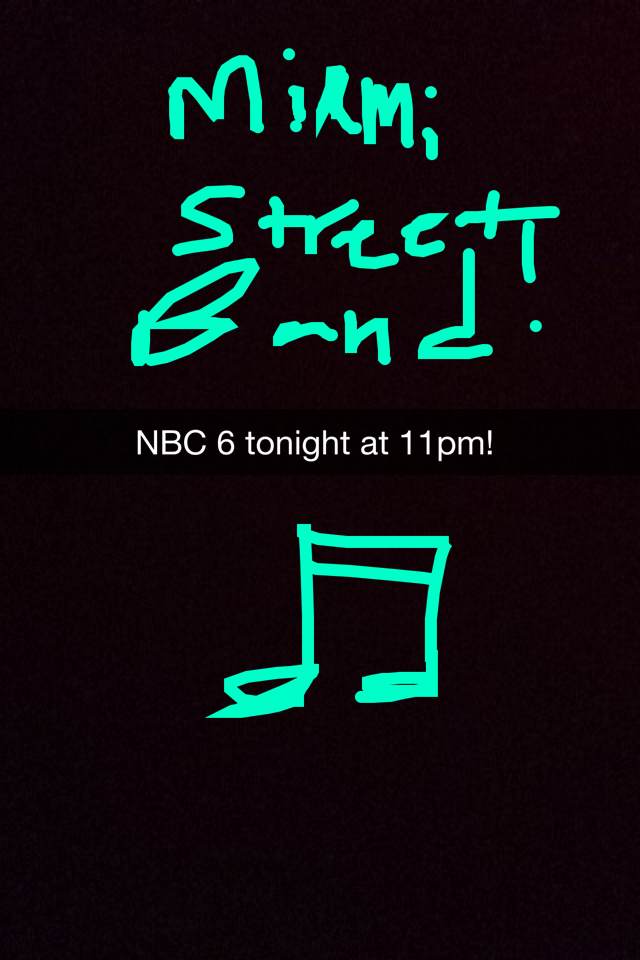 Miami
Street
Band!
NBC 6 tonight at 11pm!